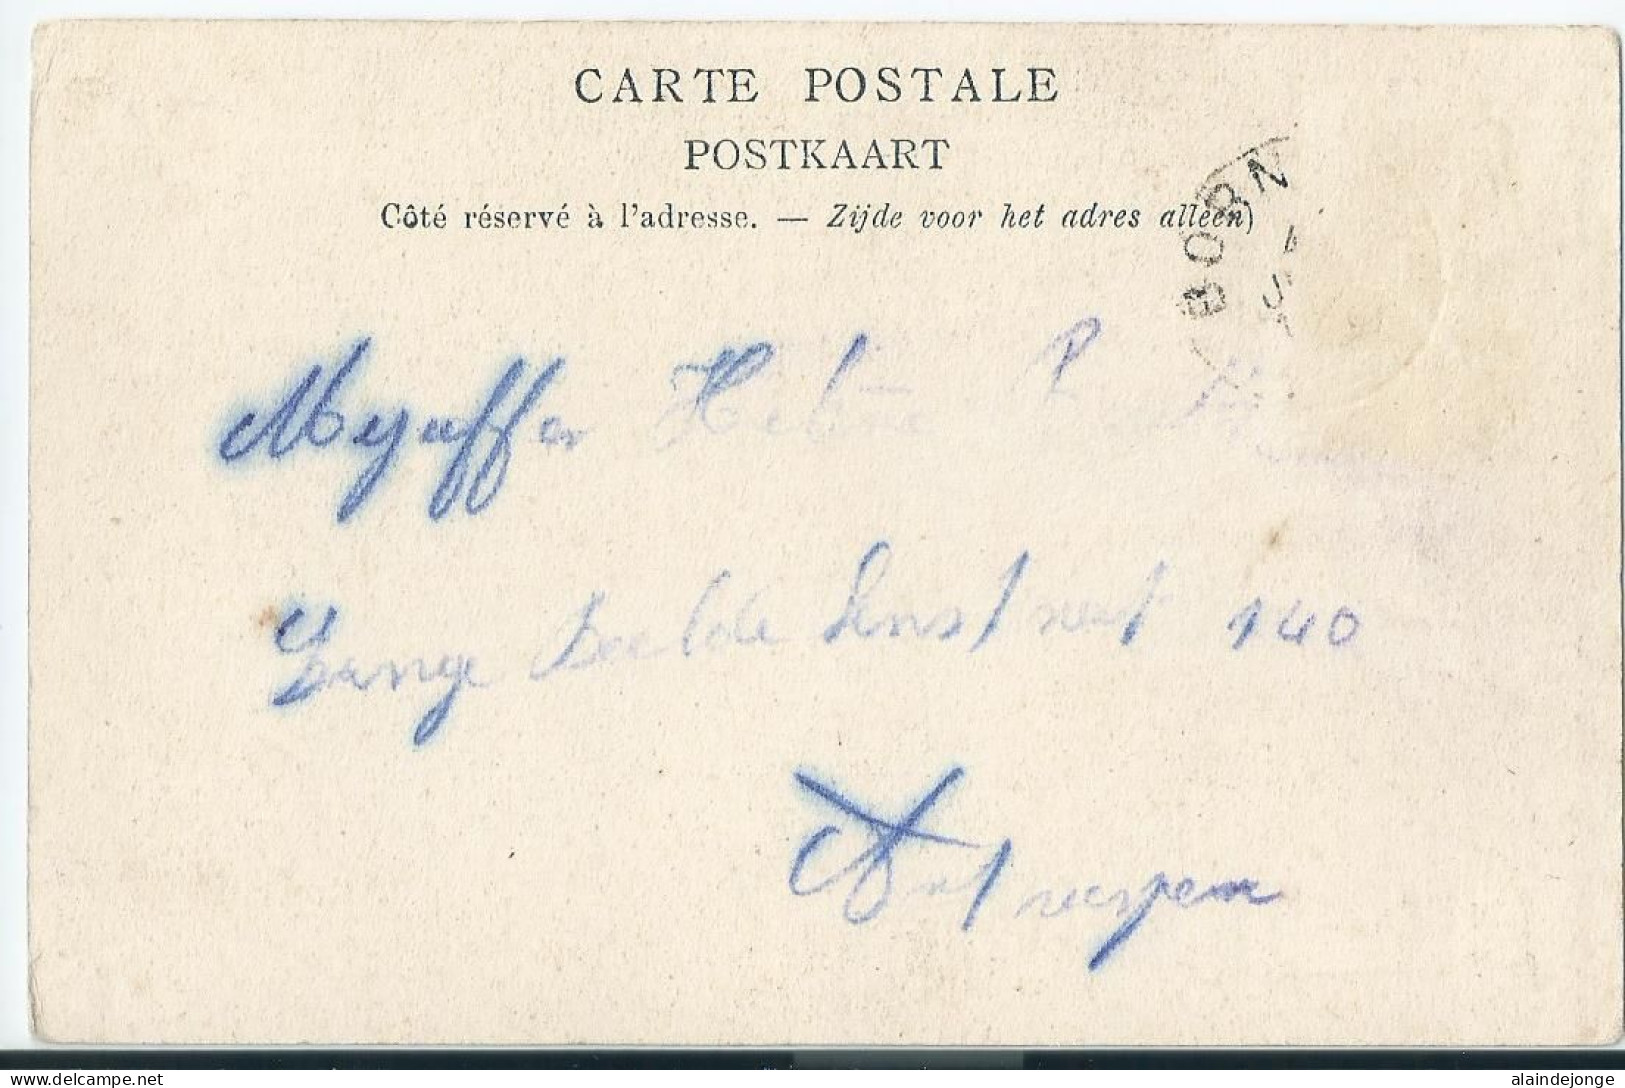 CARTE POSTALE
POSTKAART
Côté réservé à l'adresse. — Zijde voor het adres alleen)
BORN
Mejuffer Helène
Lange Beeldekensstraat 140
Antwerpen
delcampe.net
alaindejonge